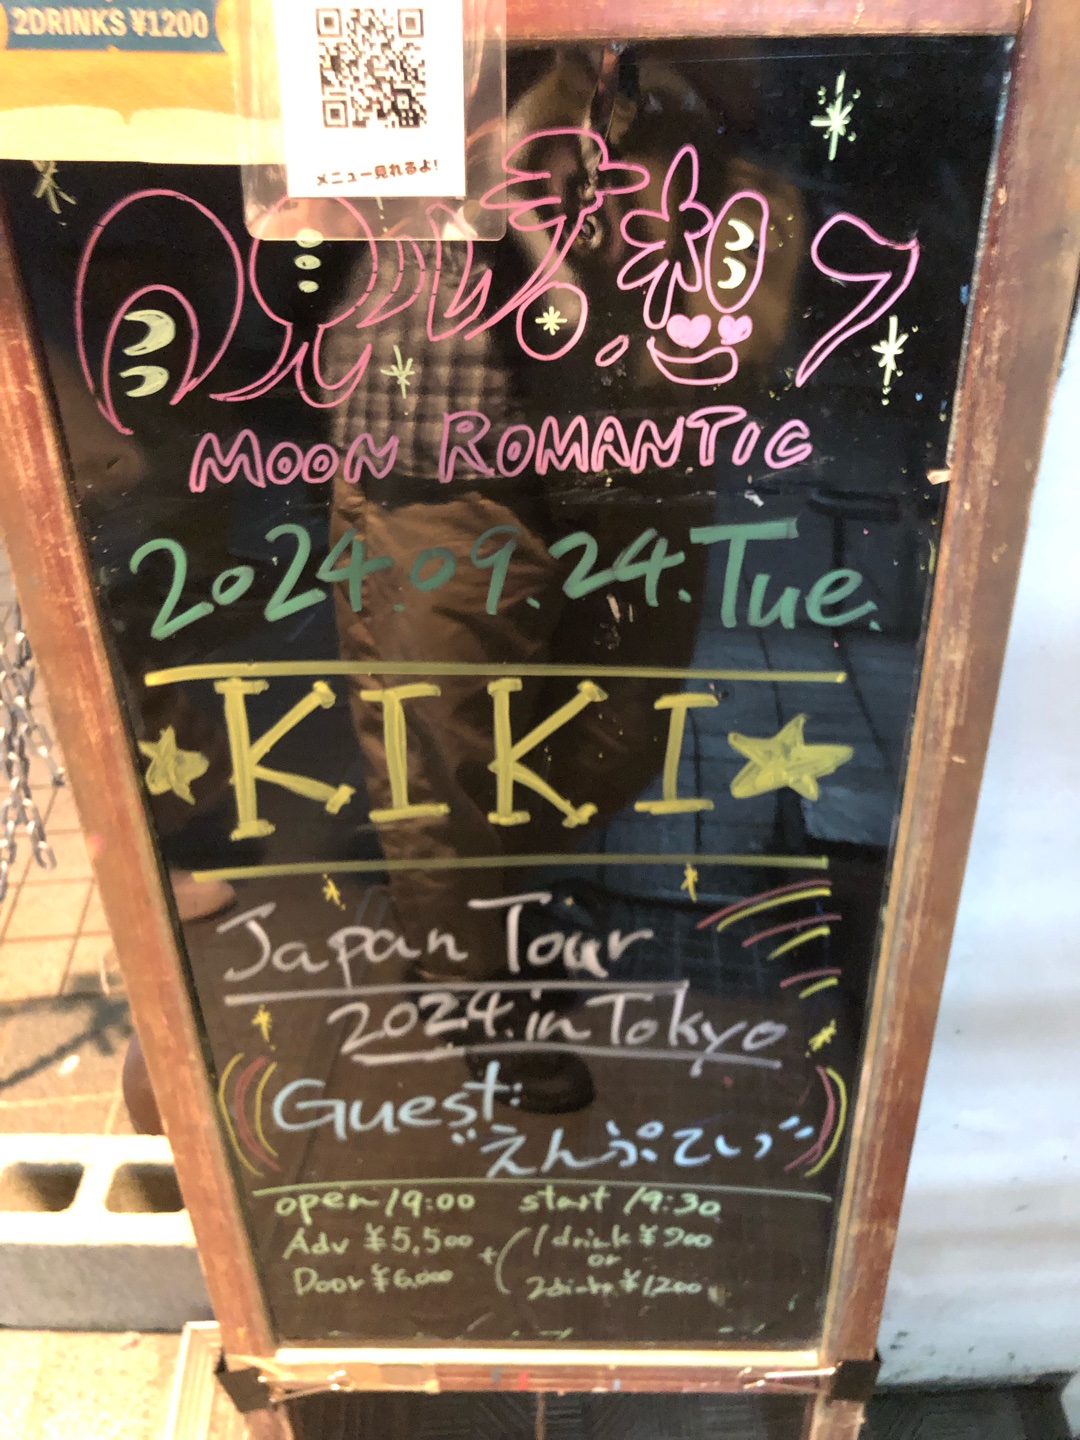 2DRINKS ¥1200
メニュー見れるよ!
MOON ROMANTIC
2024.09.24.Tue.
KIKI
Japan Tour
2024.in Tokyo
Guest:
"えんぷてい"
open 19:00 start 19:30
Adv ¥5,500 + ( 1drink ¥900
or
Door ¥6,000 2drinks ¥1,200